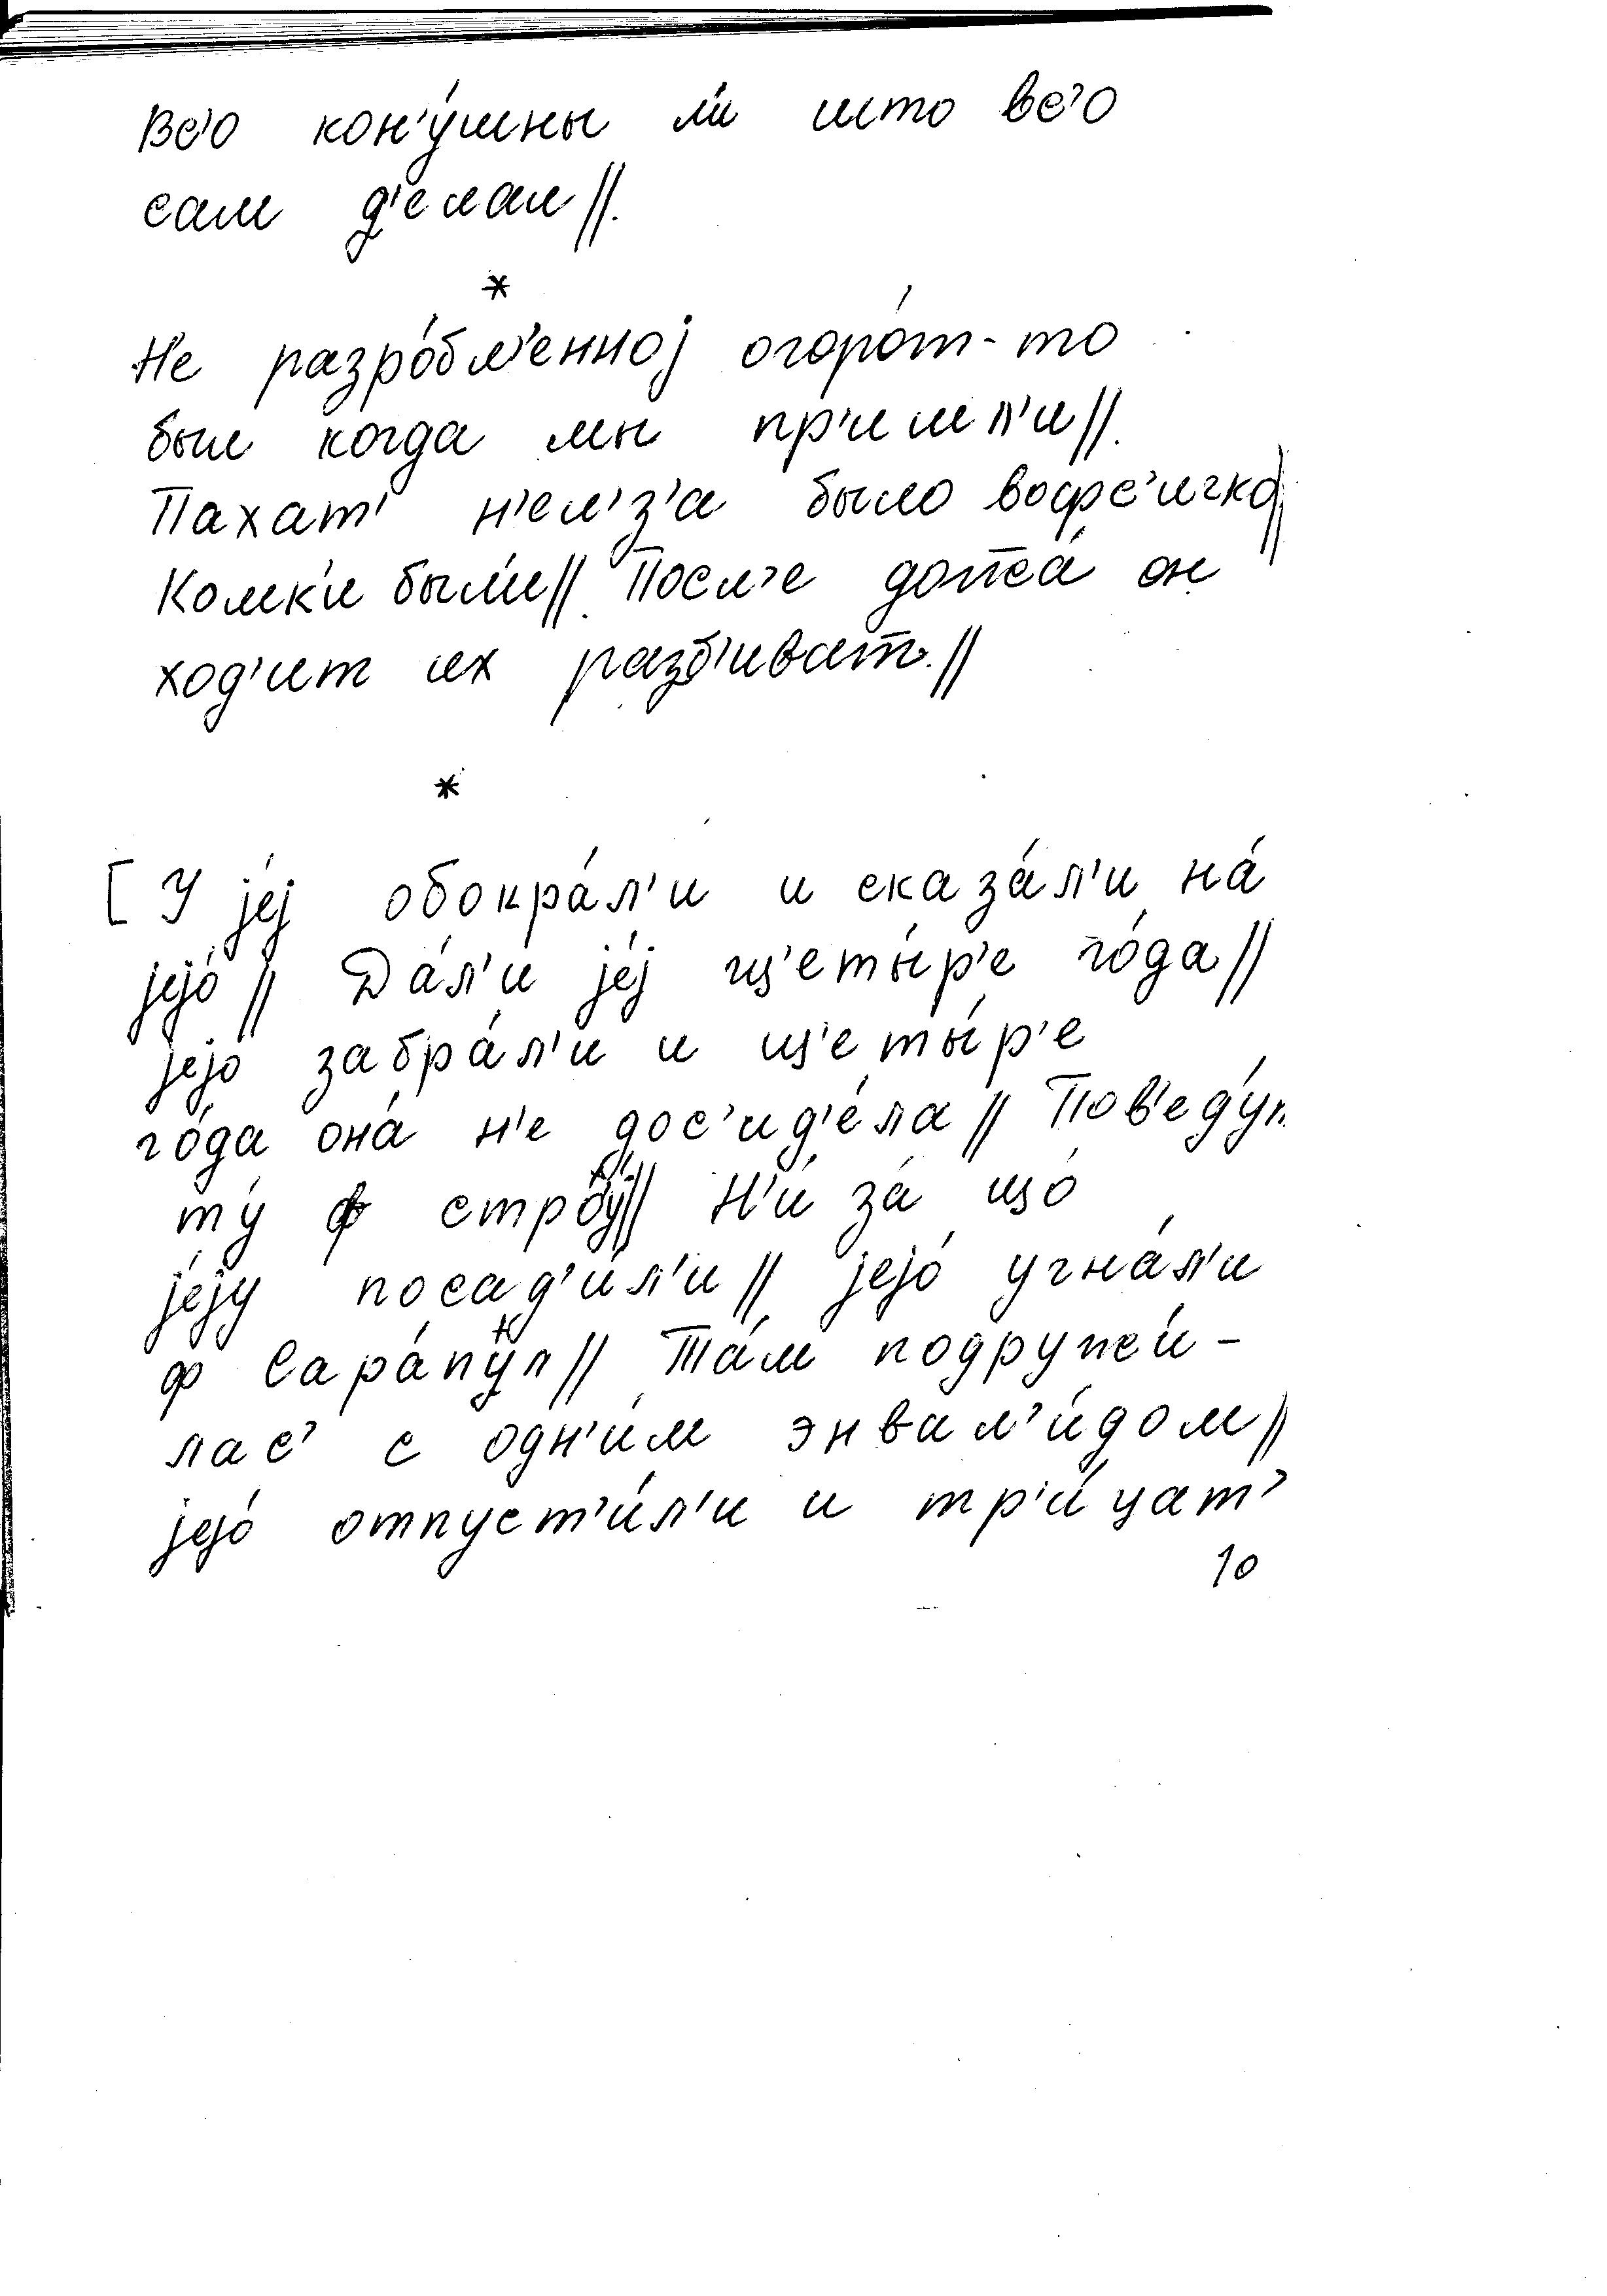 Вс'о кон'у́шны л'и што вс'о
сам д'елал //.
*
Н'е разро́бл'еннoj огоро́т-то
был когда мы пр'ишл'и //.
Пахат' н'ел'з'а было вофс'ичко //
Комк'и был'и // Посл'е допса́ он
ход'ит их разб'иват. //
*
[ У jе́j обокра́л'и и сказа́л'и на́
jejо́ // Да́л'и jе́j щ'еты́р'е го́да //
jejо́ забра́л'и и щ'еты́р'е
го́да она́ н'е дос'ид'е́ла // Пов'еду́т
ту́ ф стро́ // Н'и́ за́ що́
jе́jу посад'и́л'и // jejо́ угна́л'и
ф Сара́пул // Та́м подружи́-
лас' с одн'и́м энвал'и́дом //
jejо́ отпуст'и́л'и и тр'и́цат'
10